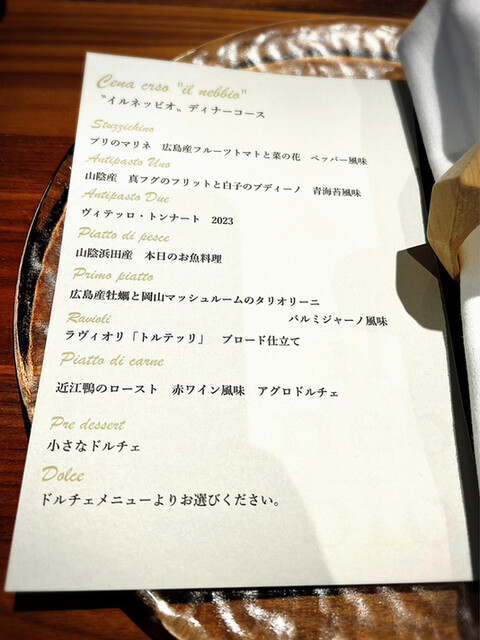 Cena crso "il nebbio"
〝イルネッビオ〟ディナーコース
Stuzzichino
ブリのマリネ 広島産フルーツトマトと菜の花 ペッパー風味
Antipasto Uno
山陰産 真フグのフリットと白子のブディーノ 青海苔風味
Antipasto Due
ヴィテッロ・トンナート 2023
Piatto di pesce
山陰浜田産 本日のお魚料理
Primo piatto
広島産牡蠣と岡山マッシュルームのタリオリーニ
パルミジャーノ風味
Ravioli
ラヴィオリ「トルテッリ」 ブロード仕立て
Piatto di carne
近江鴨のロースト 赤ワイン風味 アグロドルチェ
Pre dessert
小さなドルチェ
Dolce
ドルチェメニューよりお選びください。